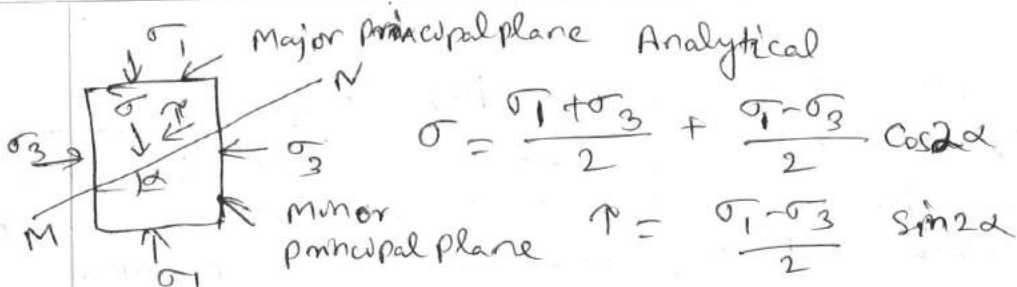 σ₁ Major principal plane Analytical
N
σ τ
σ₃ σ₃ σ = (σ₁ + σ₃)/2 + (σ₁ - σ₃)/2 Cos2α
α
M Minor principal plane τ = (σ₁ - σ₃)/2 Sin2α
σ₁